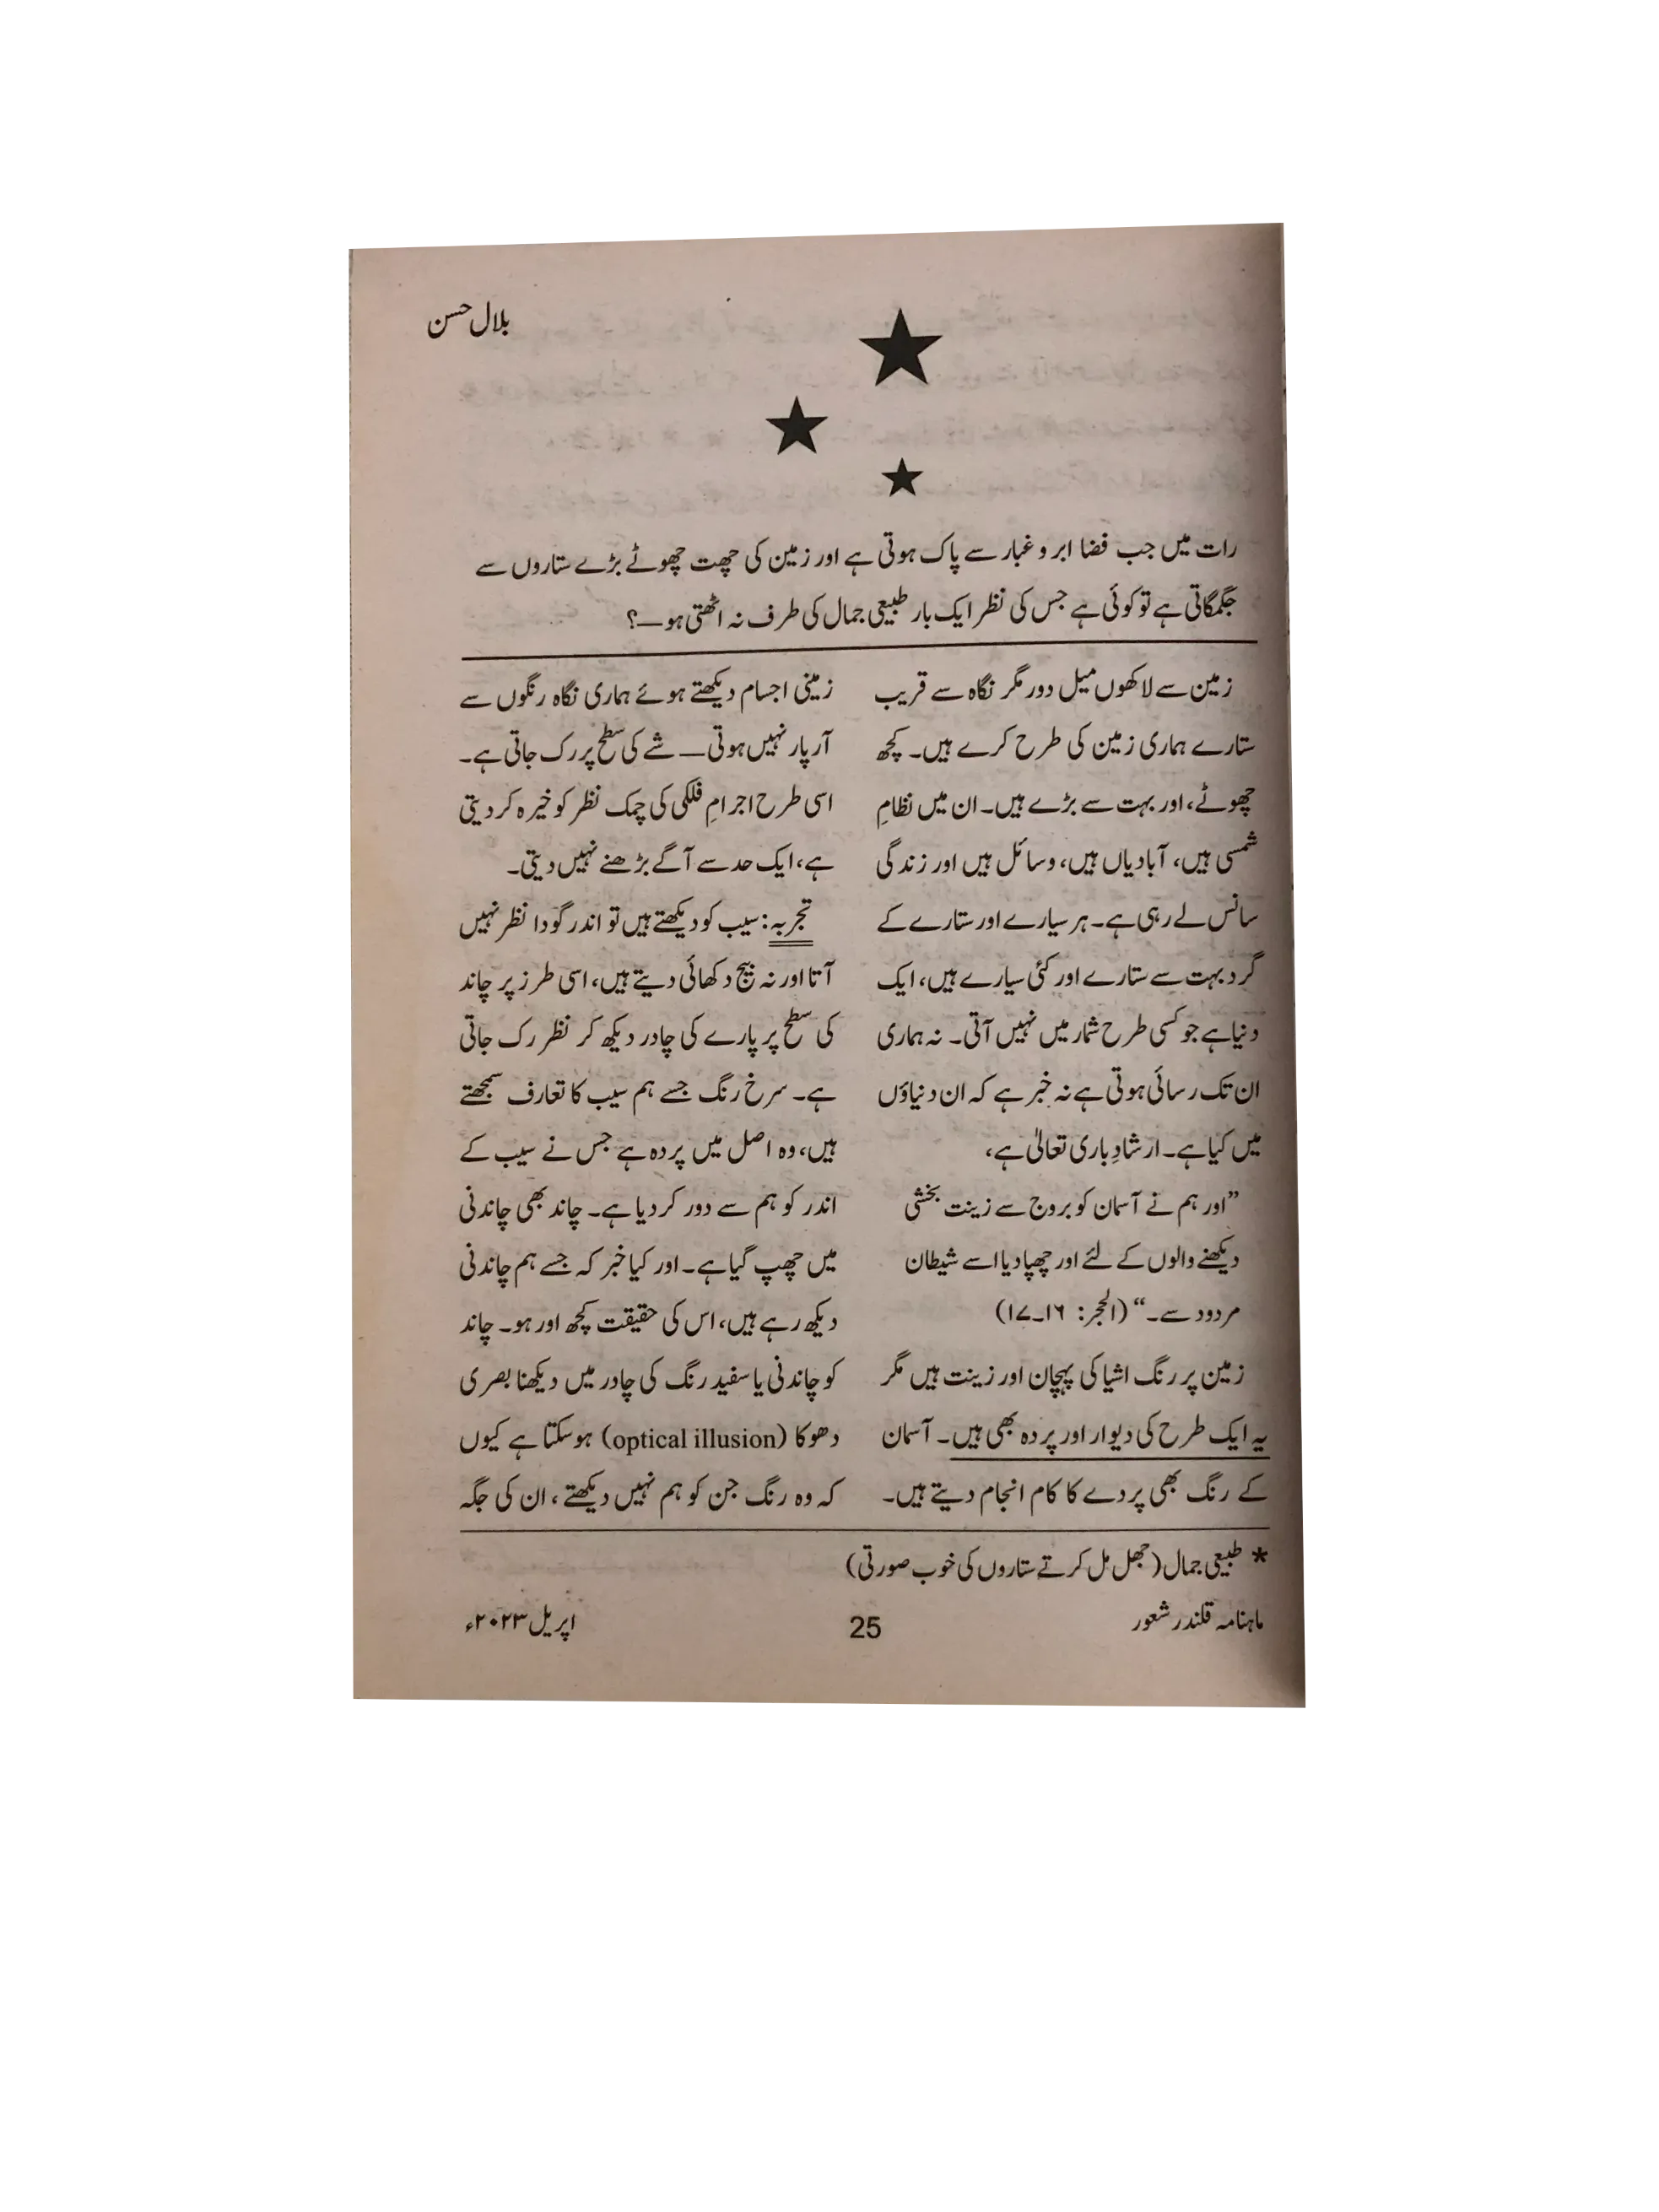 بلال حسن
رات میں جب فضا ابر و غبار سے پاک ہوتی ہے اور زمین کی چھت چھوٹے بڑے ستاروں سے
جگمگاتی ہے تو کوئی ہے جس کی نظر ایک بار طبیعی جمال کی طرف نہ اٹھتی ہو—؟
زمین سے لاکھوں میل دور مگر نگاہ سے قریب
ستارے ہماری زمین کی طرح کرے ہیں۔ کچھ
چھوٹے، اور بہت سے بڑے ہیں۔ ان میں نظامِ
شمسی ہیں، آبادیاں ہیں، وسائل ہیں اور زندگی
سانس لے رہی ہے۔ ہر سیارے اور ستارے کے
گرد بہت سے ستارے اور کئی سیارے ہیں، ایک
دنیا ہے جو کسی طرح شمار میں نہیں آتی۔ نہ ہماری
ان تک رسائی ہوتی ہے نہ خبر ہے کہ ان دنیاؤں
میں کیا ہے۔ ارشادِ باری تعالیٰ ہے،
”اور ہم نے آسمان کو بروج سے زینت بخشی
دیکھنے والوں کے لئے اور چھپا دیا اسے شیطان
مردود سے۔“ (الحجر: ۱۶۔۱۷)
زمین پر رنگ اشیا کی پہچان اور زینت ہیں مگر
یہ ایک طرح کی دیوار اور پردہ بھی ہیں۔ آسمان
کے رنگ بھی پردے کا کام انجام دیتے ہیں۔
زمینی اجسام دیکھتے ہوئے ہماری نگاہ رنگوں سے
آر پار نہیں ہوتی— شے کی سطح پر رک جاتی ہے۔
اسی طرح اجرامِ فلکی کی چمک نظر کو خیرہ کر دیتی
ہے، ایک حد سے آگے بڑھنے نہیں دیتی۔
تجربہ: سیب کو دیکھتے ہیں تو اندر گودا نظر نہیں
آتا اور نہ بیج دکھائی دیتے ہیں، اسی طرز پر چاند
کی سطح پر پارے کی چادر دیکھ کر نظر رک جاتی
ہے۔ سرخ رنگ جسے ہم سیب کا تعارف سمجھتے
ہیں، وہ اصل میں پردہ ہے جس نے سیب کے
اندر کو ہم سے دور کر دیا ہے۔ چاند بھی چاندنی
میں چھپ گیا ہے۔ اور کیا خبر کہ جسے ہم چاندنی
دیکھ رہے ہیں، اس کی حقیقت کچھ اور ہو۔ چاند
کو چاندنی یا سفید رنگ کی چادر میں دیکھنا بصری
دھوکا (optical illusion) ہو سکتا ہے کیوں
کہ وہ رنگ جن کو ہم نہیں دیکھتے، ان کی جگہ
* طبیعی جمال (جھل مل کرتے ستاروں کی خوب صورتی)
ماہنامہ قلندر شعور 25 اپریل ۲۰۲۳ء